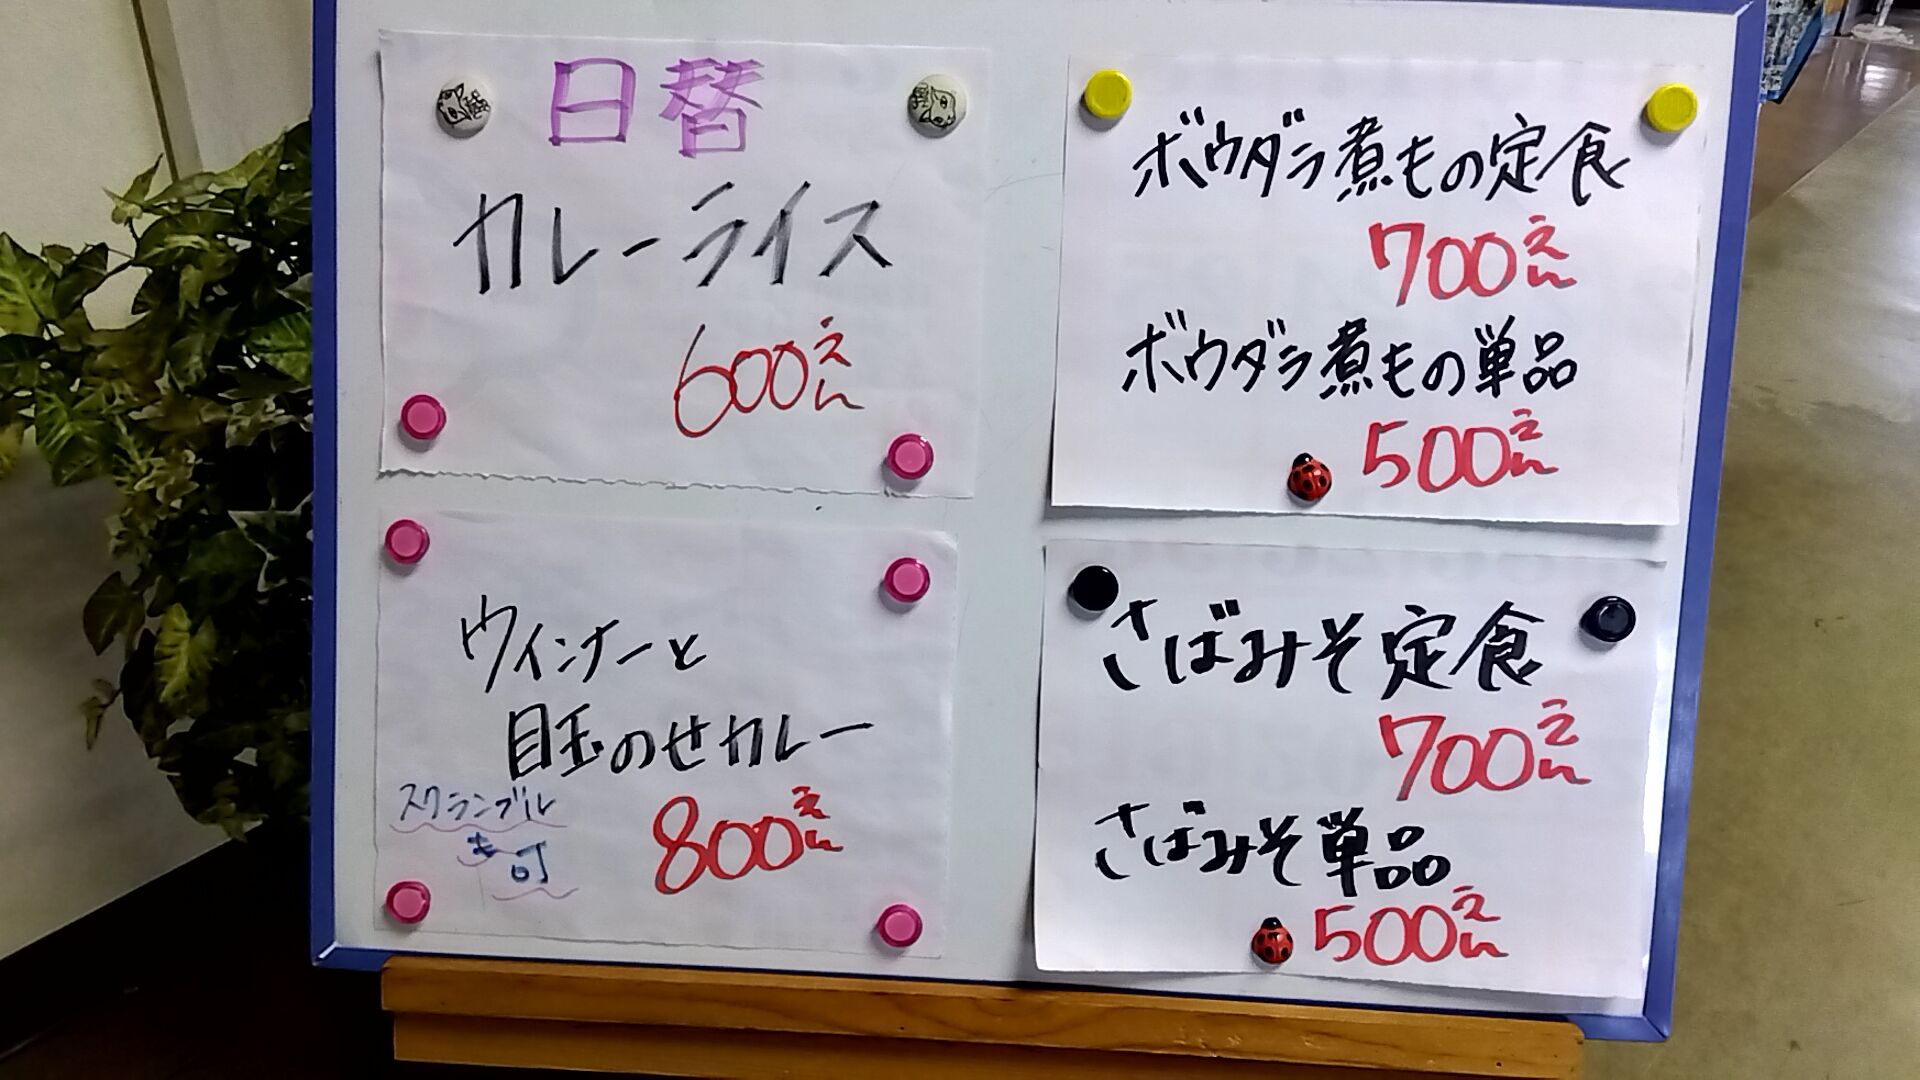 日替
カレーライス
600えん
ウインナーと
目玉のせカレー
スクランブル
も可
800えん
ボウダラ煮もの定食
700えん
ボウダラ煮もの単品
500えん
さばみそ定食
700えん
さばみそ単品
500えん